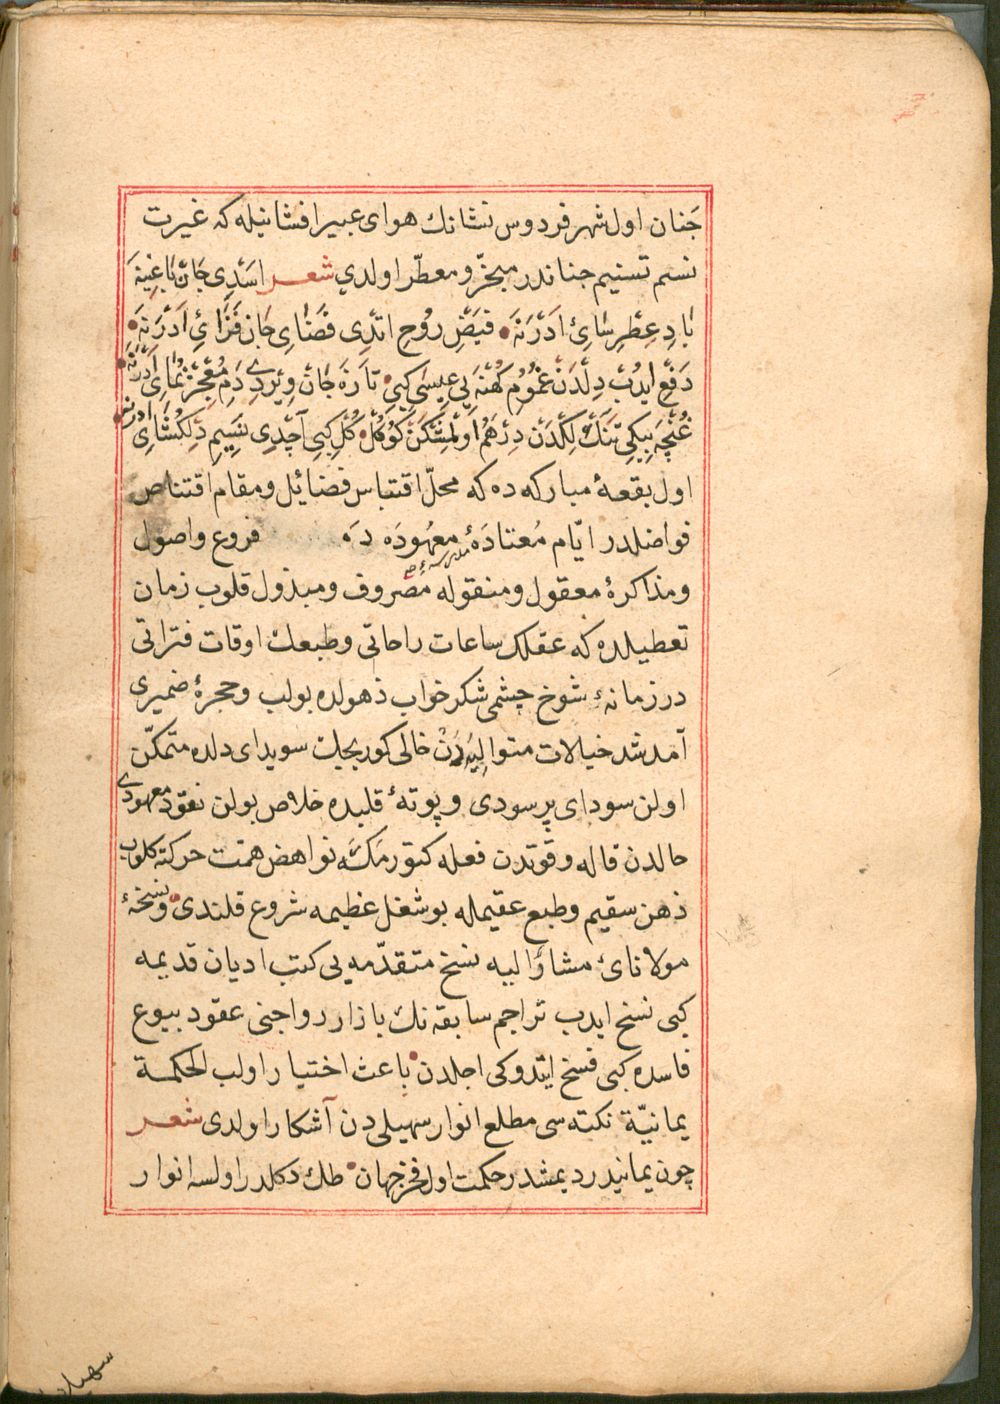 جَنان اول شهر فردوس نشانك هواى عبير افشانيله كه غيرت
نسم تسنيم جناندر مبخّر و معطّر اولدي شعر اسَدِى جَان بَاغِنَه
بَادِ عِطْرِ سَاىِٔ اَدْرَنَه فَيضِ رُوح اتدِى فَضَاىِ جَان فَزَاىِٔ اَدْرَنَه
دَفْع ايدُب دِلْدَن غُمُومِ كُهْنَه يِى عِيسَى كِبِى تَازَه جَان وِيرْدِى دَمِ مُعْجِز نُمَاىِ اَدْرَنَه
غُنچَه بِيكِى تَنْكَ لِكْدَن دِرْهَم اَولْمِشْكَن كَوكَل كُل كِبِى آچدِى نَسِيمِ دِلكُشَاىِ ادرنه
اول بقعهٔ مباركه ده كه محلّ اقتباس فضائل و مقام اقتناص
فواضلدر ايّام مُعتادَهٔ معهُودَه دَه فروع واصول
مدرسه‌ٔ
ومذاكرهٔ معقول ومنقوله مصروف ومبذول قلوب زمان
تعطيلده كه عقلك ساعات راحاتى وطبعك اوقات فتراتى
در زمانهٔ شوخ چشمى شكر خواب ذهولده بولب وحجرهٔ ضميرى
آمد شد خيالات متواليَه دَن خالى كوريجك سويداى دلده متمكّن
اولن سوداى پر سودى وپوتهٔ قلبده خلاص بولن نقود معهودى
حالدن قاله وقوتدن فعله كتورمكَه نواهض همت حركته كلوب
ذهن سقيم وطبع عقيمله بو شغل عظيمه شروع قلندى ونسخهٔ
مولاناىٔ مشاراليه نسخ متقدّمه يى كتب اديان قديمه
كبى نسخ ايدب تراجم سابقه نك بازار رواجنى عقود بيوع
فاسده كبى فسخ ايتدوكى اجلدن باعث اختيار اولب الحكمة
يمانيّة نكته سى مطلع انوار سهيلى دن آشكار اولدى شعر
چون يمانيدر ديمشدر حكمت اول فخر جهان طك دكلدر اولسه انوار